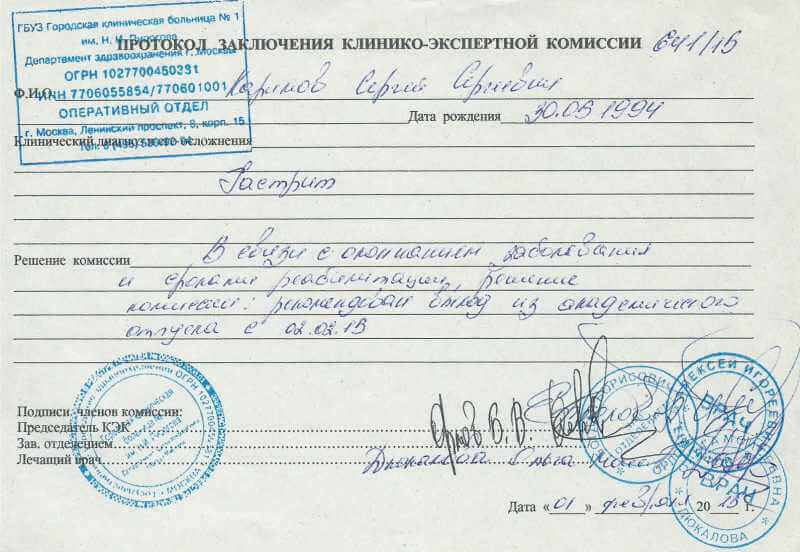 ГБУЗ Городская клиническая больница № 1
им. Н. И. Пирогова
Департамент здравоохранения г. Москвы
ОГРН 1027700450381
ИНН 7706055854/770601001
ОПЕРАТИВНЫЙ ОТДЕЛ
г. Москва, Ленинский проспект, 8, корп. 15
ПРОТОКОЛ ЗАКЛЮЧЕНИЯ КЛИНИКО-ЭКСПЕРТНОЙ КОМИССИИ 641/15
Ф.И.О. Каримов Сергей Сергеевич
Дата рождения 30.05 1994
Клинический диагноз
осложнения
Гастрит
Решение комиссии В связи с окончанием заболевания
и сроками реабилитации, решение
комиссии: рекомендован выход из академического
отпуска с 02.02.15
Подписи членов комиссии:
Председатель КЭК
Зав. отделением
Лечащий врач
Дата «01» февраля 2015 г.
АЛЕКСЕЙ ИГОРЕВИЧ
ВРАЧ
БОРИСОВИЧ
ВРАЧ
ЛЮКАЛОВА